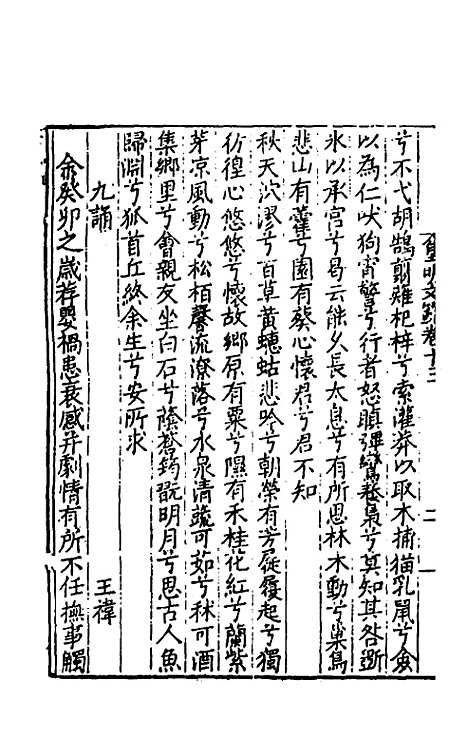 皇明文衡卷十三　二
兮不弋胡鵠翦雖杞梓兮索灌莽以取木捕猫乳鼠兮僉
以為仁吠狗宵警兮行者怒瞋彈鸞養梟兮莫知其咎斵
氷以承宫兮曷云能久長太息兮有所思林木動兮巢鳥
悲山有藿兮園有葵心懷君兮君不知
秋天泬漻兮百草黃蟪蛄悲吟兮朝榮有芳屣履起兮獨
彷徨心悠悠兮懷故鄉原有粟兮隰有禾桂花紅兮蘭紫
芽凉風動兮松栢馨流潦落兮水泉清蔬可茹兮秫可酒
集鄉里兮會親友坐白石兮蔭蒼筠翫明月兮思古人魚
歸淵兮狐首丘終余生兮安所求
九誦　王禕
余癸卯之嵗荐嬰禍患哀感并劇情有所不任撫事觸